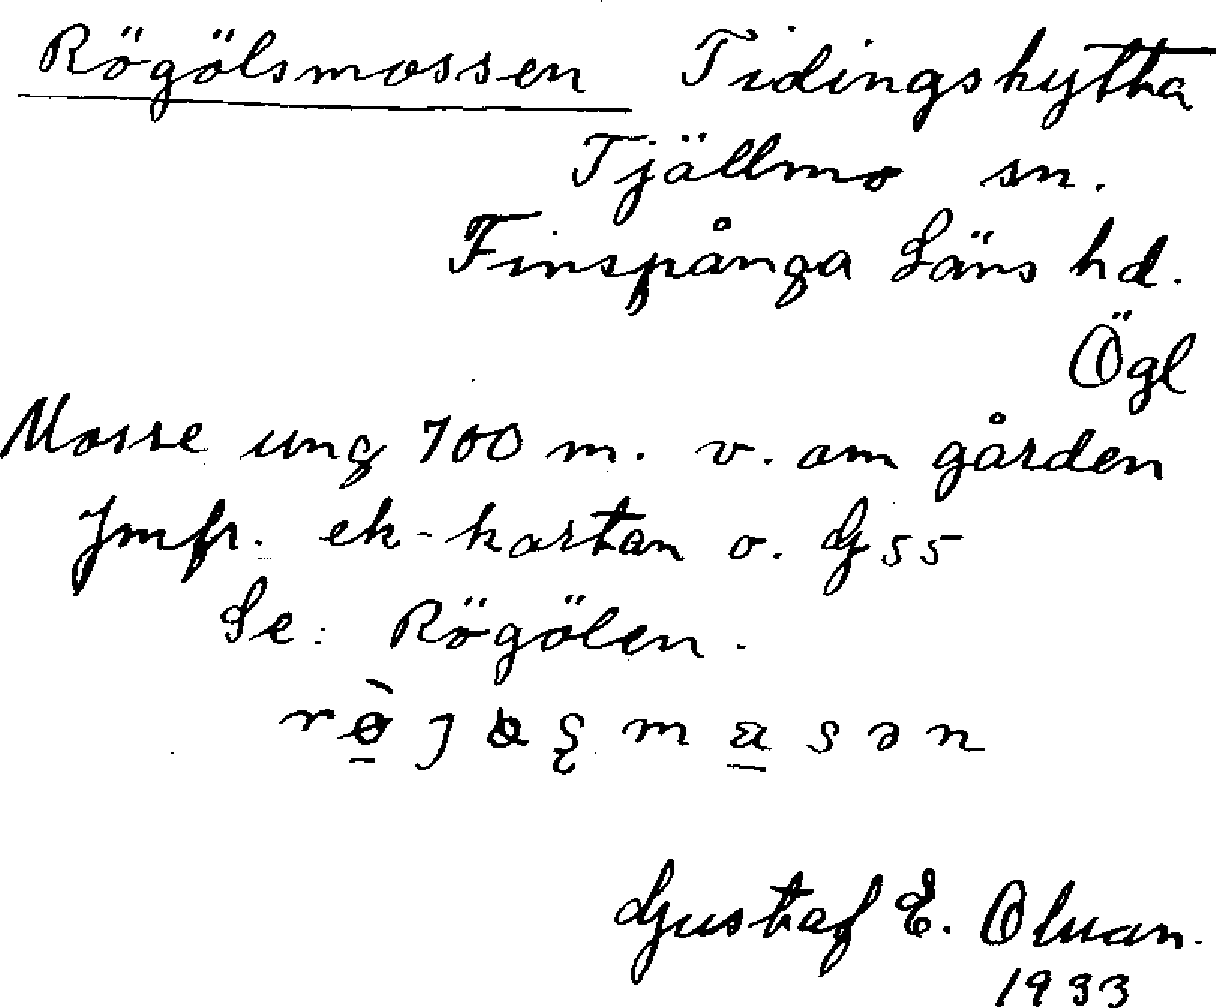 Rögölsmossen Tidingshytta
Tjällmo sn.
Finspånga Läns hd.
Ögl
Mosse ung 700 m. v. om gården
Jmfr. ek-kartan o. G 55
Se: Rögölen.
Gustaf E. Olman.
1933